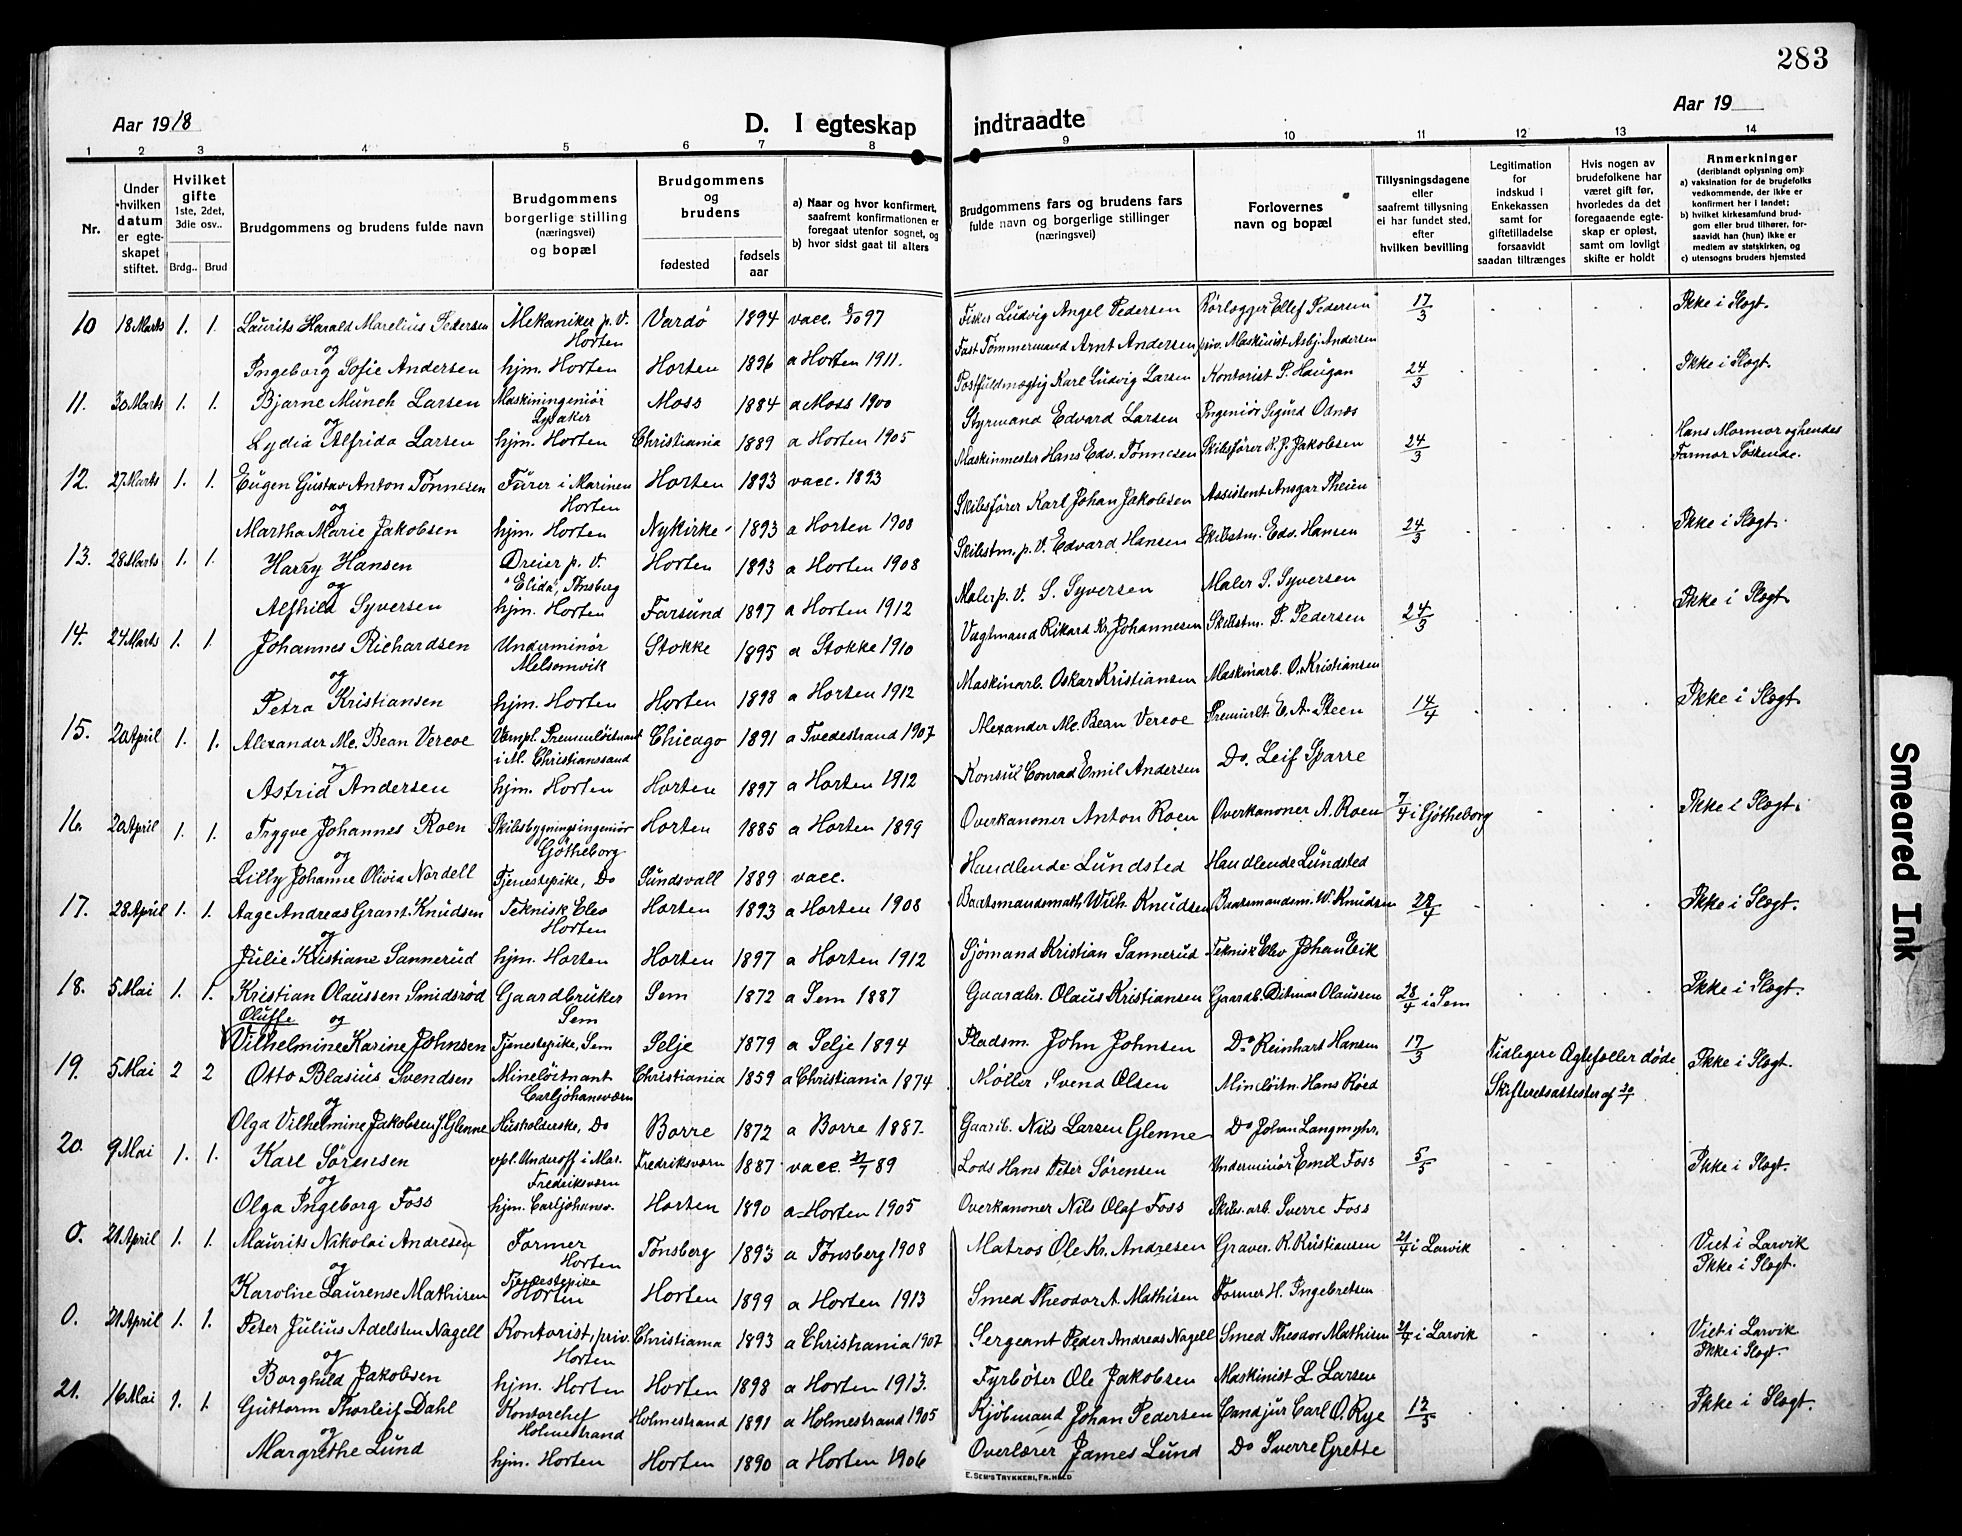 283
Aar 1918
D. I egteskap indtraadte
Aar 19
1 2 3 4 5 6 7 8 9 10 11 12 13 14
Nr.
Under hvilken datum er egteskapet stiftet.
Hvilket gifte 1ste, 2det, 3die osv..
Brdg.. Brud
Brudgommens og brudens fulde navn
Brudgommens borgerlige stilling (næringsvei) og bopæl
Brudgommens og brudens
fødested
fødsels aar
a) Naar og hvor konfirmert, saafremt konfirmationen er foregaat utenfor sognet, og
b) hvor sidst gaat til alters
Brudgommens fars og brudens fars fulde navn og borgerlige stillinger (næringsvei)
Forlovernes navn og bopæl
Tillysningsdagene eller saafremt tillysning ei har fundet sted, efter hvilken bevilling
Legitimation for indskud i Enkekassen samt for giftetilladelse forsaavidt saadan tiltrænges
Hvis nogen av brudefolkene har været gift før, hvorledes da det foregaaende egteskap er opløst, samt om lovligt skifte er holdt
Anmerkninger (deriblandt oplysning om):
a) vaksination for de brudefolks vedkommende, der ikke er konfirmert her i landet;
b) hvilket kirkesamfund brudgom eller brud tilhører, forsaavidt han (hun) ikke er medlem av statskirken, og
c) utensogns bruders hjemsted
10 18 Marts 1. 1. Laurits Harald Marelius Pedersen Mekaniker p. V. Horten Vardø 1894 vacc. 8/10 97 Fisker Ludvig Angel Pedersen Rørlægger Ellef Pedersen 17/3 Ikke i Slægt.
og
Ingeborg Sofie Andersen hjm. Horten Horten 1896 a Horten 1911. Fast Tømmermand Arnt Andersen priv. Maskinist Asbj. Andersen
11. 30 Marts 1. 1. Bjarne Münch Larsen Maskiningeniør Lysaker Moss 1884 a Moss 1900 Postfuldmægtig Karl Ludvig Larsen Kontorist P. Haugan 24/3 Ikke i Slægt.
og
Lydia Alfrida Larsen hjm. Horten Christiania 1889 a Horten 1905 Styrmand Edvard Larsen Ingeniør Sigurd Odnæs
12. 27 Marts 1. 1. Eugen Gustav Anton Tønnesen Furer i Marinen Horten Horten 1893 vacc. 1893 Maskinmester Hans Edv. Tønnesen Skibsfører K. J. Jakobsen 24/3 Hans Mormor og hendes Farmor Søskende.
og
Martha Marie Jakobsen hjm. Horten Nykirke 1893 a Horten 1908 Skibsfører Karl Johan Jakobsen Assistent Ansgar Theien
13. 28 Marts 1. 1. Harry Hansen Dreier p. V. "Elida", Tønsberg Horten 1893 a Horten 1908 Skibstm. p. V. Edvard Hansen Skibstm. Edv. Hansen 24/3 Ikke i Slægt.
og
Alfhild Syversen hjm. Horten Farsund 1897 a Horten 1912 Maler p. V. S. Syversen Maler S. Syversen
14. 24 Marts 1. 1. Johannes Richardsen Underminør Melsomvik Stokke 1895 a Stokke 1910 Vagtmand Rikard Kr. Johannesen Skibstm. P. Pedersen 24/3 Ikke i Slægt.
og
Petra Kristiansen hjm. Horten Horten 1898 a Horten 1912 Maskinarb. Oskar Kristiansen Maskinarb. O. Kristiansen
15. 20 April 1. 1. Alexander Mc. Bean Vereoe Vernpl. Premierløitnant i M. Christianssand Chicago 1891 a Tvedestrand 1907 Alexander Mc. Bean Vereoe Premierlt. E. A. Steen 14/4 Ikke i Slægt.
og
Astrid Andersen hjm. Horten Horten 1897 a Horten 1912 Konsul Conrad Emil Andersen Do. Leif Sparre
16. 20 April 1. 1. Trygve Johannes Roen Skibsbygningsingeniør Gøtheborg Horten 1885 a Horten 1899 Overkanoner Anton Roen Overkanoner A. Roen 7/4 i Gøtheborg Ikke i Slægt.
og
Lilly Johanne Olivia Nordell Tjenestepike, Do Sundsvall 1889 vacc. Handlende Lundsted Handlende Lundsted
17. 28 April 1. 1. Aage Andreas Grant Knudsen Teknisk Elev Horten Horten 1893 a Horten 1908 Baatsmandsmath Wilh. Knudsen Baatsmandsm. W. Knudsen 28/4 Ikke i Slægt.
og
Julie Kristiane Sannerud hjm. Horten Horten 1897 a Horten 1912 Sjømand Kristian Sannerud Teknisk Elev Johan Eik
18. 5 Mai 1. 1. Kristian Olaussen Smidsrød Gaardbruker Sem Sem 1872 a Sem 1887 Gaardbr. Olaus Kristiansen Gaardb. Ditmar Olaussen 28/4 i Sem Ikke i Slægt.
Oluffe og
Vilhelmine Karine Johnsen Tjenestepike, Sem Selje 1879 a Selje 1894 Pladsm. John Johnsen Do Reinhart Hansen
19. 5 Mai 2 2 Otto Blasius Svendsen Mineløitnant Carljohansværn Christiania 1859 a Christiania 1874 Møller Svend Olsen Mineløitn. Hans Røed 17/3 Tidligere Ægtefæller døde Skifteretsattester af 30/1 Ikke i Slægt.
og
Olga Vilhelmine Jakobsen f. Glenne Husholderske, Do Borre 1872 a Borre 1887. Gaarb. Nils Larsen Glenne Do Johan Langmyhr.
20. 9 Mai 1. 1. Karl Sørensen vpl. Underoff i Mar. Fredriksværn Fredriksværn 1887 vacc. 31/7 89 Lods Hans Peter Sørensen Underminør Emil Foss 5/5 Ikke i Slægt.
og
Olga Ingeborg Foss hjm. Carljohansv. Horten 1890 a Horten 1905 Overkanoner Nils Olaf Foss Skibs. arb. Sverre Foss
0. 21 April 1. 1. Maurits Nikolai Andresen Former Horten Tønsberg 1893 a Tønsberg 1908 Matros Ole Kr. Andresen Graver. K. Kristiansen 21/4 i Larvik Viet i Larvik Ikke i Slægt.
og
Karoline Laurense Mathisen Tjenestepike Horten Horten 1899 a Horten 1913 Smed Theodor A. Mathisen Former H. Ingebretsen
0. 21 April 1. 1. Peter Julius Adelsten Nagell Kontorist, priv. Horten Christiania 1893 a Christiania 1907 Sergeant Peder Andreas Nagell Smed Theodor Mathisen 21/4 i Larvik Viet i Larvik Ikke i Slægt.
og
Borghild Jakobsen hjm. Horten Horten 1898 a Horten 1913. Fyrbøter Ole Jakobsen Maskinist L. Larsen
21. 16 Mai 1. 1. Guttorm Thorleif Dahl Kontorchef Holmestrand Holmestrand 1891 a Holmestrand 1905 Kjøbmand Johan Pedersen Cand jur Carl O. Rye 12/5 Ikke i Slægt.
og
Margrethe Lund hjm. Horten Horten 1890 a Horten 1906 Overlærer James Lund Do Sverre Grette
E. SEM'S TRYKKERI, FR.HALD
Smeared Ink